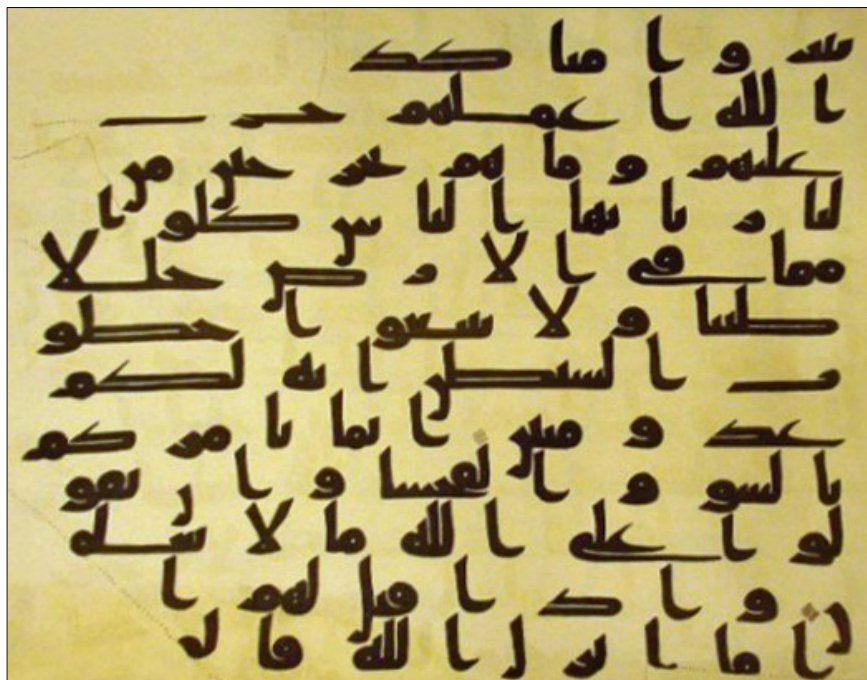 تبر وا منا كذ
الله اعملهم حسر
عليهم وما هم بخرجين من
لنار يايها الناس كلوا
مما في الارض حللا
طيبا ولا تتبعوا خطو
ت الشيطن انه لكم
عدو مبين انما يامركم
بالسو والفحشا وان تقو
لوا على الله ما لا تعلمو
ن واذا قيل لهم ا
ما انزل الله قا